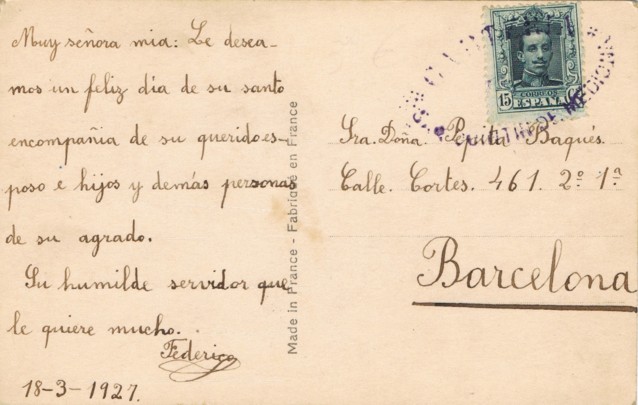 Muy señora mia: Le desea-
mos un feliz día de su santo
encompañia de su querido es-
poso e hijos y demás personas
de su agrado.
Su humilde servidor que
le quiere mucho.
Federico
18-3-1927.
Made in France - Fabriqué en France
15 CORREOS Cs
ESPAÑA
Sra. Doña. Pepita Baqués.
Calle. Cortes. 461. 2º 1ª
Barcelona